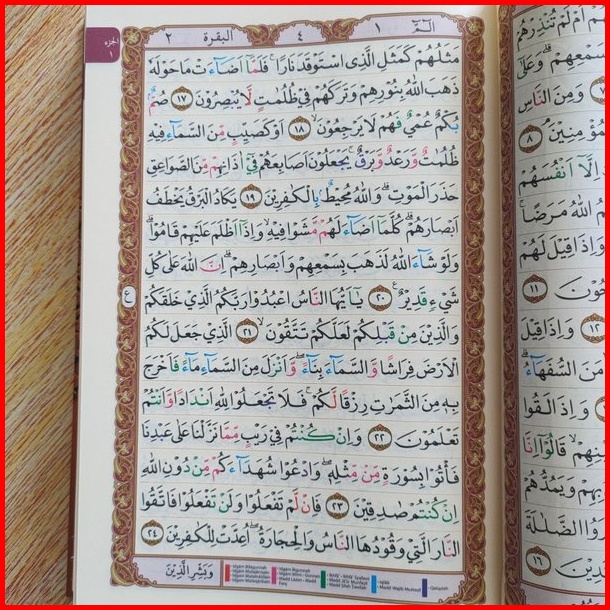 الٓمّٓ ١ ٤ البقرة ٢
الجزء ١
مَثَلُهُمْ كَمَثَلِ الَّذِى اسْتَوْقَدَ نَارًا ۚ فَلَمَّآ اَضَاۤءَتْ مَا حَوْلَهٗ
ذَهَبَ اللّٰهُ بِنُوْرِهِمْ وَتَرَكَهُمْ فِيْ ظُلُمٰتٍ لَّا يُبْصِرُوْنَ ١٧ صُمٌّ ۢ
بُكْمٌ عُمْيٌ فَهُمْ لَا يَرْجِعُوْنَ ۙ ١٨ اَوْ كَصَيِّبٍ مِّنَ السَّمَاۤءِ فِيْهِ
ظُلُمٰتٌ وَّرَعْدٌ وَّبَرْقٌ ۚ يَجْعَلُوْنَ اَصَابِعَهُمْ فِيْٓ اٰذَانِهِمْ مِّنَ الصَّوَاعِقِ
حَذَرَ الْمَوْتِ ۗ وَاللّٰهُ مُحِيْطٌ ۢ بِالْكٰفِرِيْنَ ١٩ يَكَادُ الْبَرْقُ يَخْطَفُ
اَبْصَارَهُمْ ۗ كُلَّمَآ اَضَاۤءَ لَهُمْ مَّشَوْا فِيْهِ ۙ وَاِذَآ اَظْلَمَ عَلَيْهِمْ قَامُوْا ۗ
وَلَوْ شَاۤءَ اللّٰهُ لَذَهَبَ بِسَمْعِهِمْ وَاَبْصَارِهِمْ ۗ اِنَّ اللّٰهَ عَلٰى كُلِّ
شَيْءٍ قَدِيْرٌ ࣖ ٢٠ يٰٓاَيُّهَا النَّاسُ اعْبُدُوْا رَبَّكُمُ الَّذِيْ خَلَقَكُمْ
وَالَّذِيْنَ مِنْ قَبْلِكُمْ لَعَلَّكُمْ تَتَّقُوْنَ ۙ ٢١ الَّذِيْ جَعَلَ لَكُمُ
الْاَرْضَ فِرَاشًا وَّالسَّمَاۤءَ بِنَاۤءً ۖ وَّاَنْزَلَ مِنَ السَّمَاۤءِ مَاۤءً فَاَخْرَجَ
بِهٖ مِنَ الثَّمَرٰتِ رِزْقًا لَّكُمْ ۚ فَلَا تَجْعَلُوْا لِلّٰهِ اَنْدَادًا وَّاَنْتُمْ
تَعْلَمُوْنَ ٢٢ وَاِنْ كُنْتُمْ فِيْ رَيْبٍ مِّمَّا نَزَّلْنَا عَلٰى عَبْدِنَا
فَأْتُوْا بِسُوْرَةٍ مِّنْ مِّثْلِهٖ ۖ وَادْعُوْا شُهَدَاۤءَكُمْ مِّنْ دُوْنِ اللّٰهِ
اِنْ كُنْتُمْ صٰدِقِيْنَ ٢٣ فَاِنْ لَّمْ تَفْعَلُوْا وَلَنْ تَفْعَلُوْا فَاتَّقُوا
النَّارَ الَّتِيْ وَقُوْدُهَا النَّاسُ وَالْحِجَارَةُ ۖ اُعِدَّتْ لِلْكٰفِرِيْنَ ٢٤
وَبَشِّرِ الَّذِيْنَ
ع